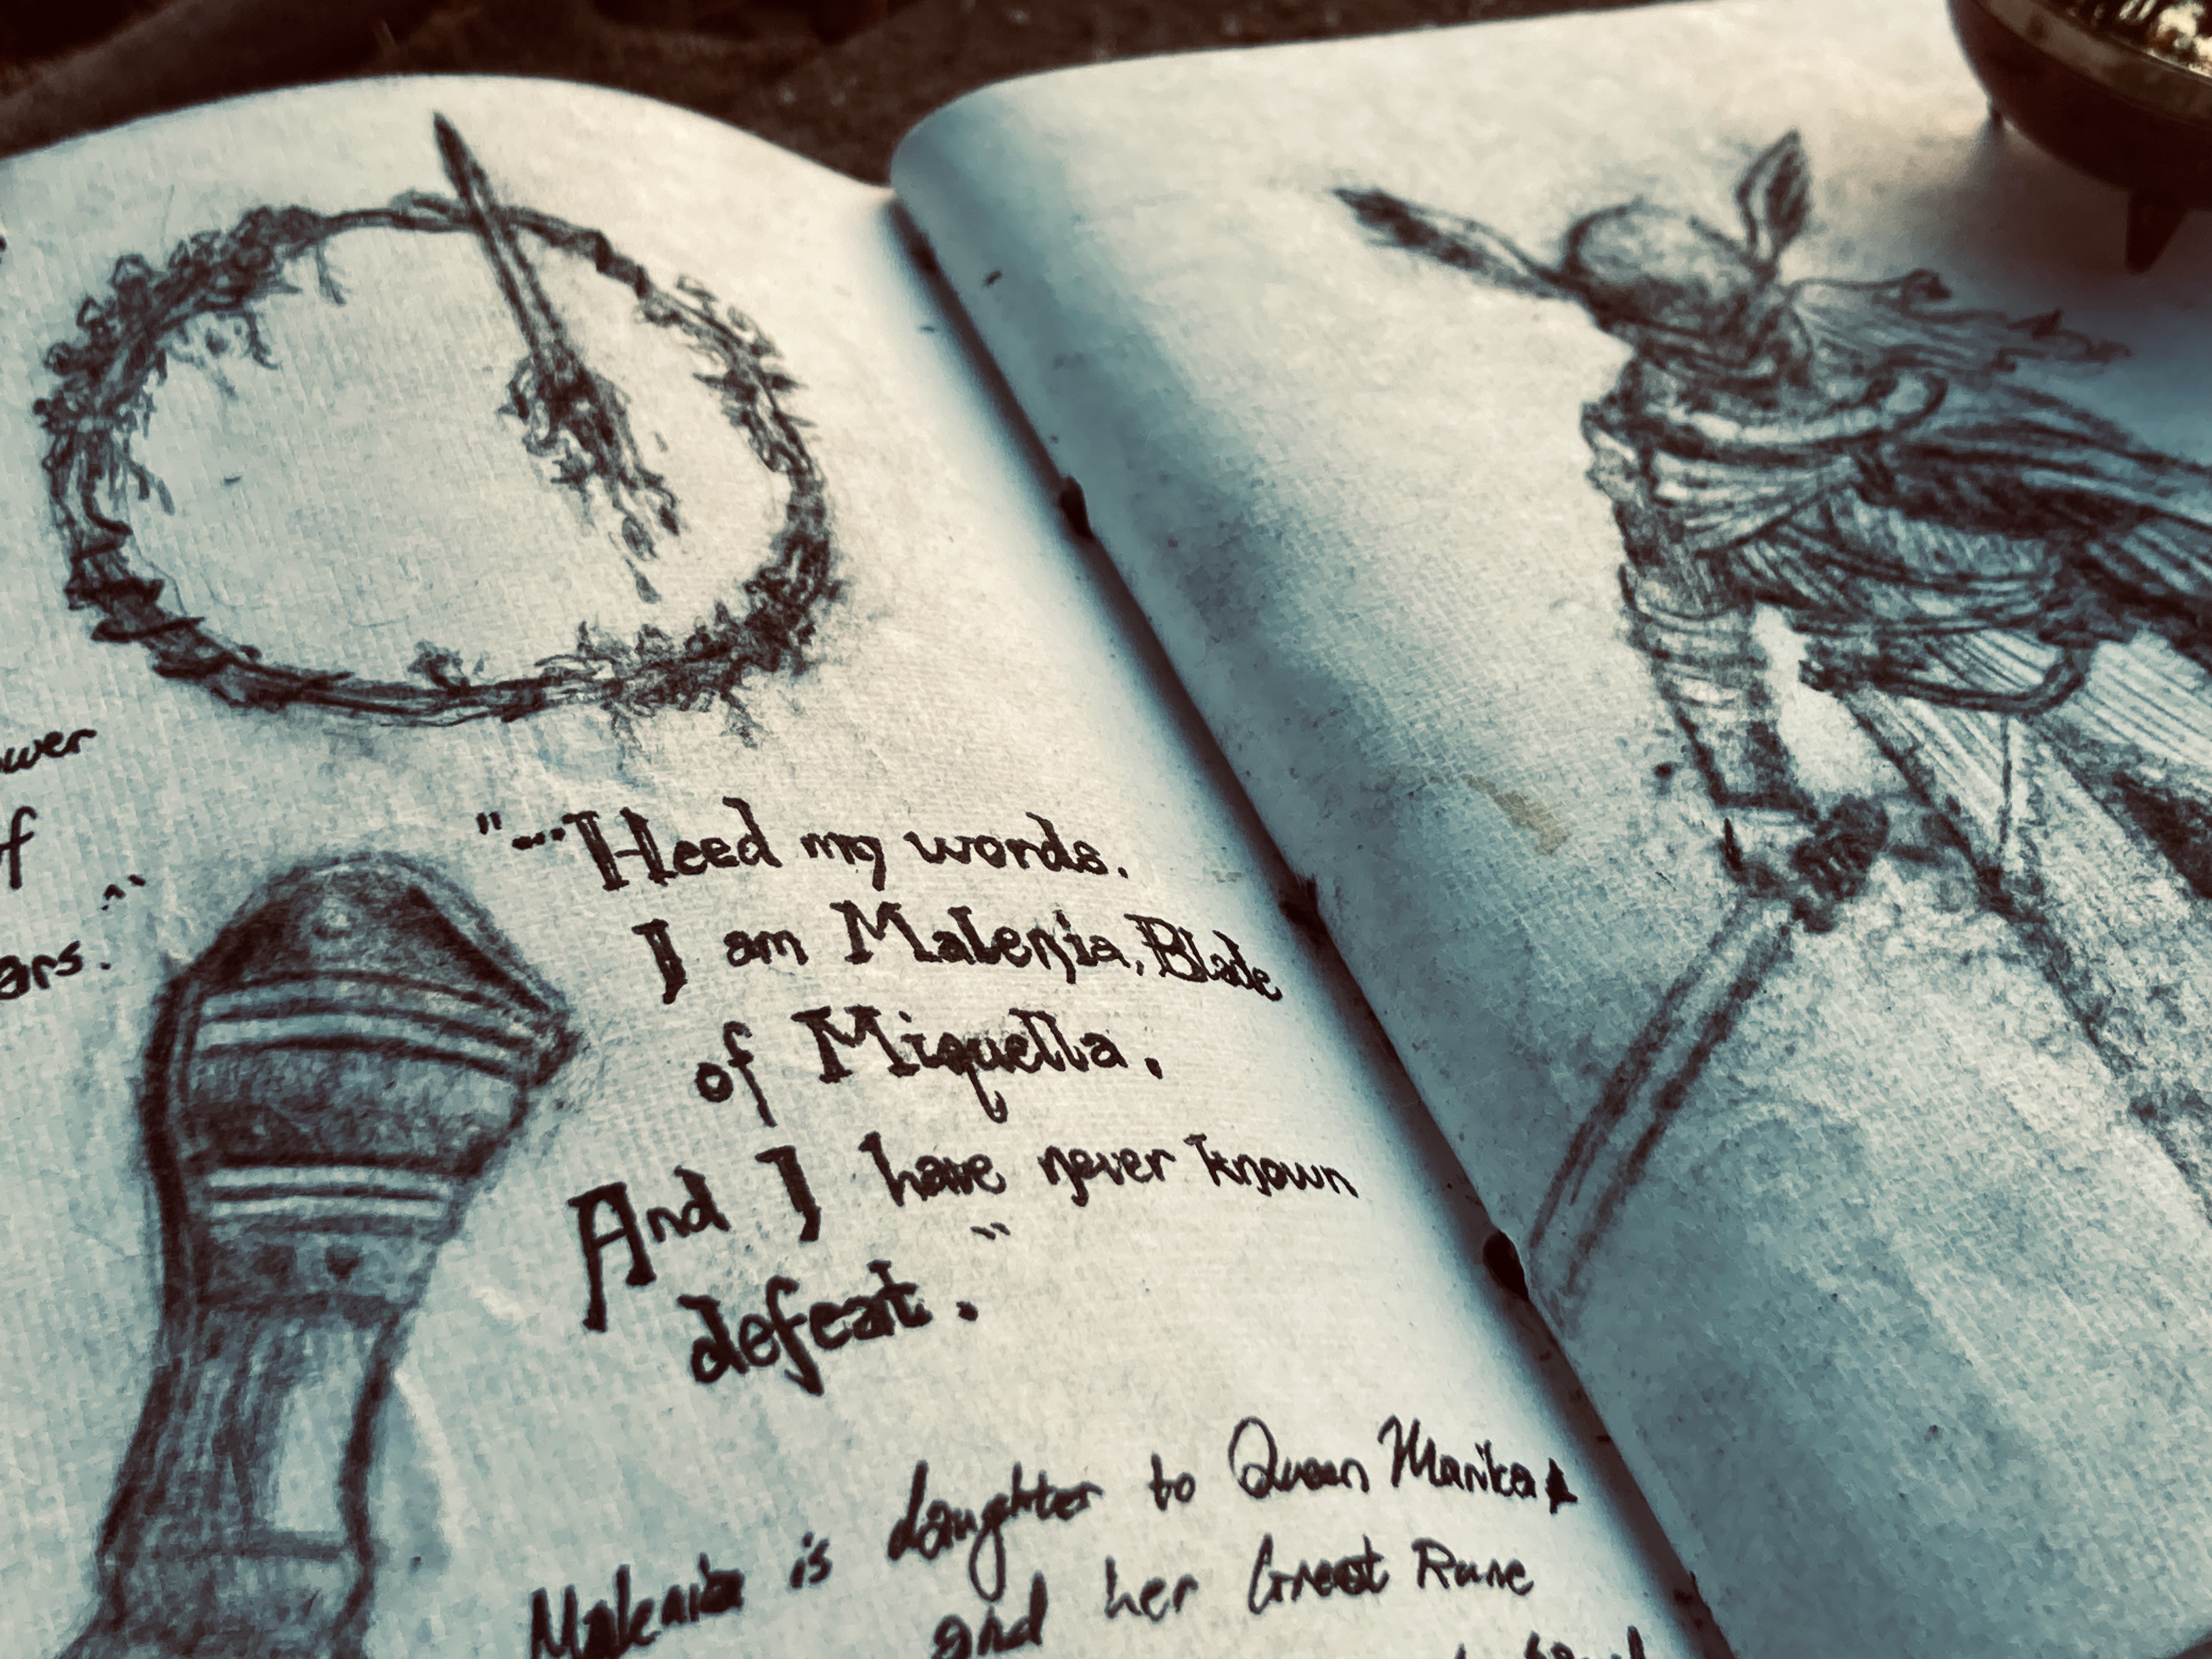 of
"...Heed my words.
I am Malenia, Blade
of Miquella.
And I have never known
defeat."
Malenia is daughter to Queen Marika
and her Great Rune